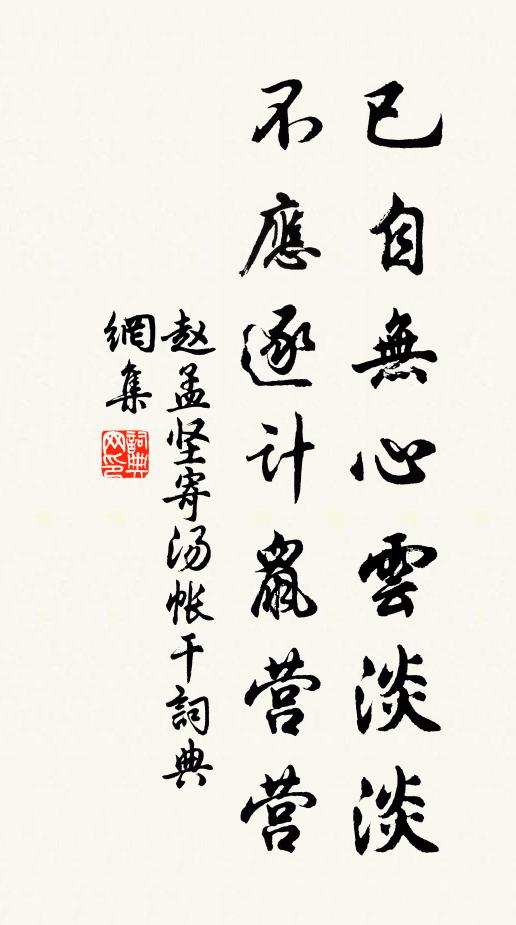 已自無心雲淡淡
不應逐计鼠营营
赵孟坚寄汤帐干詞典
網集
詞典網印